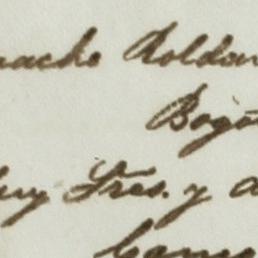 nacho Roldan
Bogot
uy Sres. y a